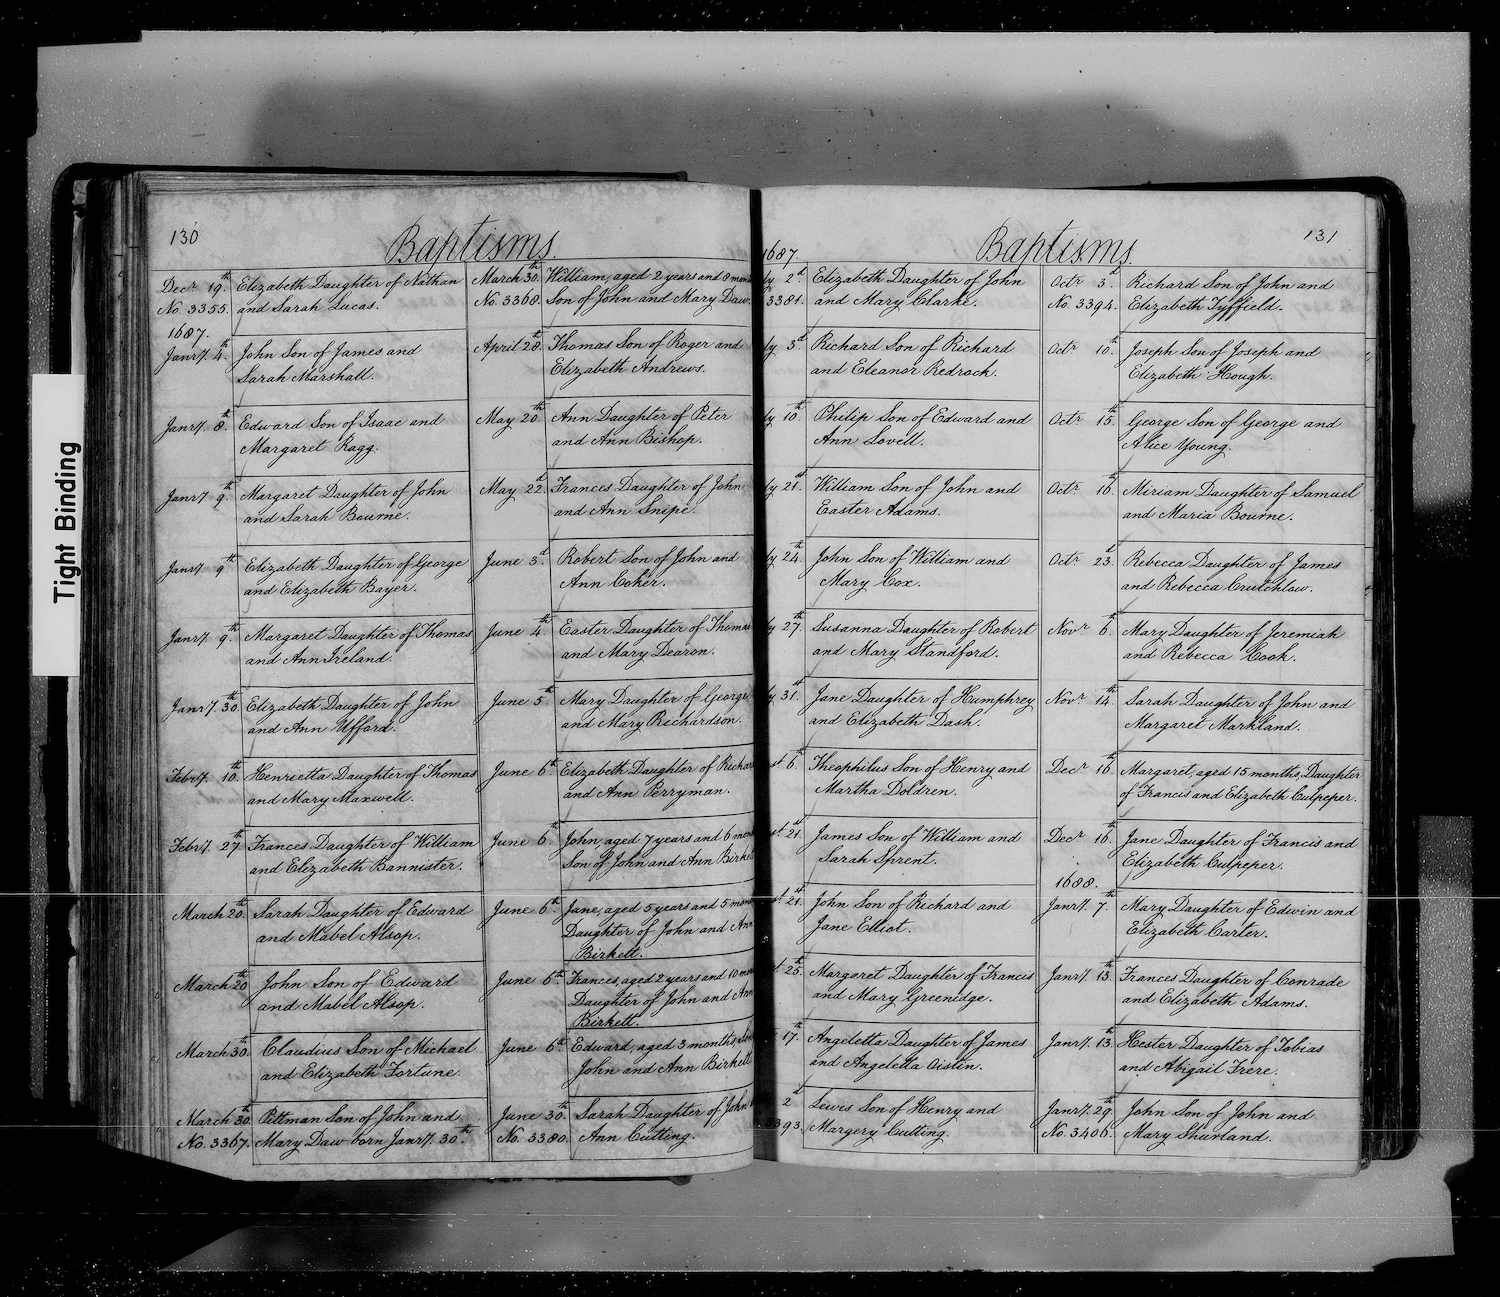 Tight Binding
130
Baptisms.
Decr 19th. Elizabeth Daughter of Nathan
No. 3355. and Sarah Lucas.
1687.
Janry. 4th. John Son of James and
Sarah Marshall.
Janry. 8th. Edward Son of Isaac and
Margaret Ragg.
Janry 9th. Margaret Daughter of John
and Sarah Bourne.
Janry 9th. Elizabeth Daughter of George
and Elizabeth Bayer.
Janry. 9th. Margaret Daughter of Thomas
and Ann Ireland.
Janry. 30th. Elizabeth Daughter of John
and Ann Ufford.
Febry. 10th. Henrietta Daughter of Thomas
and Mary Maxwell.
Febry. 27th. Frances Daughter of William
and Elizabeth Bannister.
March 20th. Sarah Daughter of Edward
and Mabel Alsop.
March 20th John Son of Edward
and Mabel Alsop.
March 30th. Claudius Son of Michael
and Elizabeth Fortune.
March 30th. Pittman Son of John and
No. 3367. Mary Daw born Janry. 30th.
March 30th. William, aged 2 years and 8 mon
No. 3368. Son of John and Mary Daw.
April 28th. Thomas Son of Roger and
Elizabeth Andrews.
May 20th Ann Daughter of Peter
and Ann Bishop.
May 22d. Frances Daughter of John
and Ann Snipe.
June 3d. Robert Son of John and
Ann Coker.
June 4th. Easter Daughter of Thomas
and Mary Dearon.
June 5th. Mary Daughter of George
and Mary Richardson.
June 6th. Elizabeth Daughter of Richar
and Ann Perryman.
June 6th. John, aged 7 years and 6 mon
Son of John and Ann Birket
June 6th. Jane, aged 5 years and 5 mon
Daughter of John and Ann
Birkett.
June 6th. Frances, aged 2 years and 10 mon
Daughter of John and Ann
Birkett.
June 6th. Edward, aged 3 months, Son
John and Ann Birkett
June 30th. Sarah Daughter of John
No. 3380. Ann Cutting.
1687.
Baptisms
131
ly 2d. Elizabeth Daughter of John
3381. and Mary Clarke.
ly 3d. Richard Son of Richard
and Eleanor Redrock.
ly 10th. Philip Son of Edward and
Ann Lovell.
ly 21st. William Son of John and
Easter Adams.
ly 24th. John Son of William and
Mary Cox.
ly 27th. Susanna Daughter of Robert
and Mary Standford.
ly 31st. Jane Daughter of Humphrey
and Elizabeth Dash.
st 6th. Theophilus Son of Henry and
Martha Doldren.
st 21st. James Son of William and
Sarah Sprent.
st 21st. John Son of Richard and
Jane Elliot.
st 25th. Margaret Daughter of Francis
and Mary Greenidge.
17th. Angeletta Daughter of James
and Angeletta Oistin.
2d Lewis Son of Henry and
3393. Margery Cutting.
Octr 3d. Richard Son of John and
No. 3394. Elizabeth Tyffield.
Octr 10th. Joseph Son of Joseph and
Elizabeth Hough.
Octr 15th. George Son of George and
Alice Young.
Octr 16th. Miriam Daughter of Samuel
and Maria Bourne.
Octr 23d. Rebecca Daughter of James
and Rebecca Crutchlow.
Novr 6th. Mary Daughter of Jeremiah
and Rebecca Cook.
Novr 14th. Sarah Daughter of John and
Margaret Markland.
Decr 16th. Margaret, aged 15 months, Daughter
of Francis and Elizabeth Culpeper.
Decr 16th. Jane Daughter of Francis and
Elizabeth Culpeper.
1688.
Janry. 7th. Mary Daughter of Edwin and
Elizabeth Carter.
Janry. 13th. Frances Daughter of Conrade
and Elizabeth Adams.
Janry. 13th. Hester Daughter of Tobias
and Abigail Frere.
Janry. 29th. John Son of John and
No. 3406. Mary Shurland.